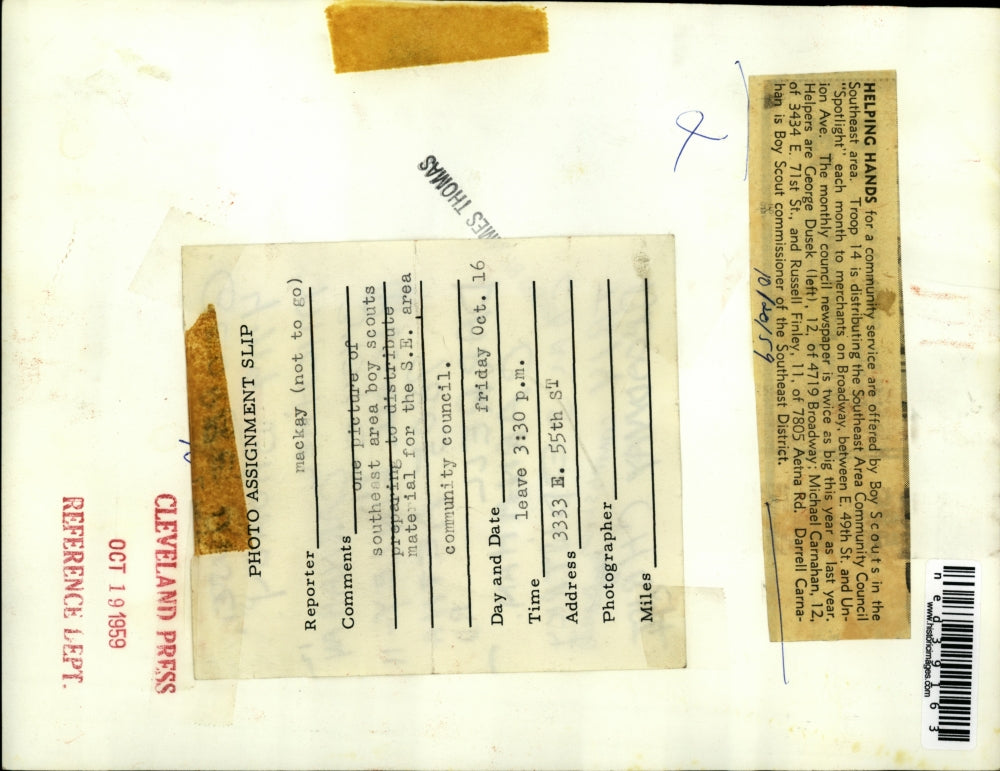 HELPING HANDS for a community service are offered by Boy Scouts in the
Southeast area. Troop 14 is distributing the Southeast Area Community Council
"Spotlight" each month to merchants on Broadway, between E. 49th St. and Un-
ion Ave. The monthly council newspaper is twice as big this year as last year.
Helpers are George Dusek (left), 12, of 4719 Broadway; Michael Carnahan, 12,
of 3434 E. 71st St., and Russell Finley, 11, of 7805 Aetna Rd. Darrell Carna-
han is Boy Scout commissioner of the Southeast District.
10/20/59
MES THOMAS
PHOTO ASSIGNMENT SLIP
Reporter mackay (not to go)
Comments one picture of
southeast area boy scouts
preparing to distribute
material for the S.E. area
community council.
Day and Date friday Oct. 16
Time leave 3:30 p.m.
Address 3333 E. 55th ST
Photographer
Miles
CLEVELAND PRESS
OCT 19 1959
REFERENCE DEPT.
ned39163
www.historicimages.com